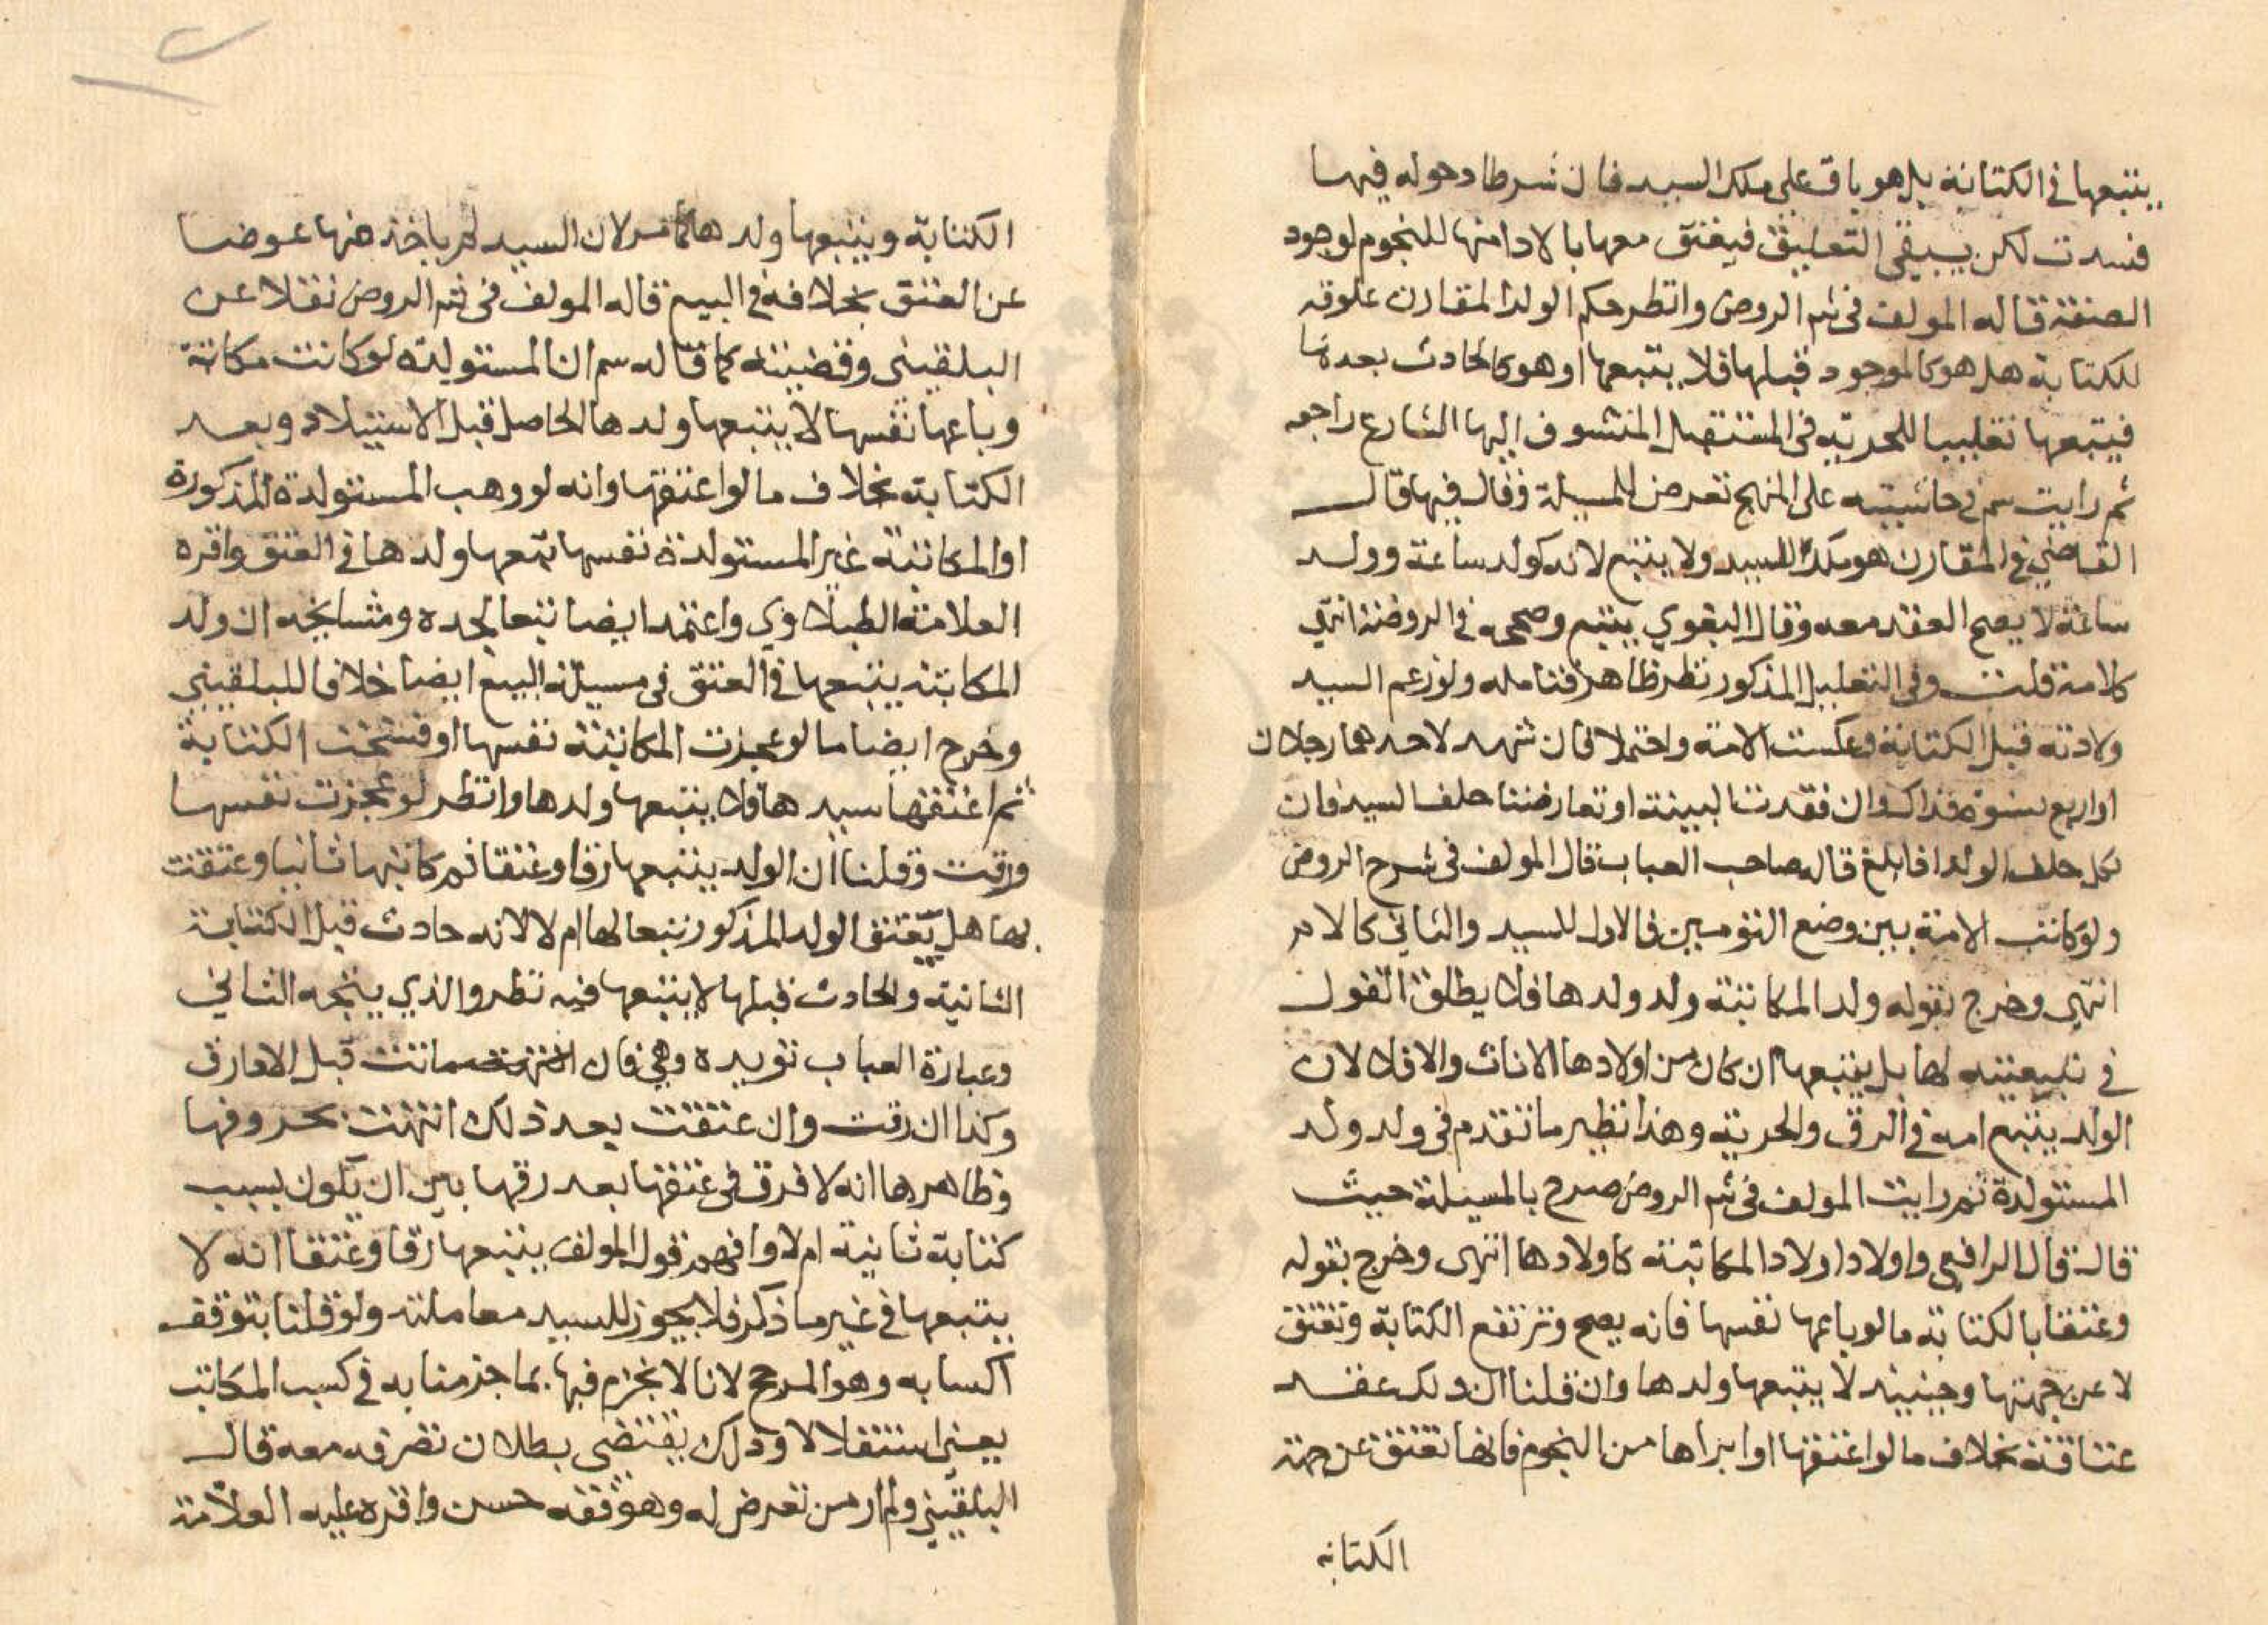 يتبعها في الكتابة بل هو باق على ملك السيد فان شرطا دخوله فيها
فسدت لكن يبقي التعليق فيعتق معها بالادا منها للنجوم لوجود
الصفة قاله المولف في شم الروض وانظر حكم الولد المقارن علوقه
للكتابة هل هو كالموجود قبلها فلا يتبعها او هو كالحادث بعدها
فيتبعها تغليبا للحرية في المستقبل المتشوف اليها الشارع راجعه
ثم رايت سم في حاشيته على المنهج تعرض للمسيلة وقال فيها قال
القاضي في المقارن هو ملك للسيد ولا يتبع لانه كولد ساعة وولد
ساعة لا يصح العقد معه وقال البغوي يتبع وصححه في الروضة انتهي
كلامه قلت وفي التعليل المذكور نظر ظاهر فتامله ولو زعم السيد
ولادته قبل الكتابة وعكست الامة واحتملا فان شهد لاحدهما رجلان
او اربع نسوة فذاك وان فقدت البينة او تعارضتا حلف السيد فان
نكل حلف الولد اذا بلغ قاله صاحب العباب قال المولف في شرح الروض
ولو كاتب الامة بين وضع التومين فالاول للسيد والثاني كالام
انتهي وخرج بقوله ولد المكاتبة ولد ولدها فلا يطلق القول
في تبعيته لها بل يتبعها ان كان من اولادها الاناث والا فلا لان
الولد يتبع امه في الرق والحرية وهذا نظير ما تقدم في ولد ولد
المستولدة ثم رايت المولف في شم الروض صرح بالمسيلة حيث
قال قال الرافعي واولاد اولاد المكاتبة كاولادها انتهى وخرج بقوله
وعتقا بالكتابة ما لو باعها نفسها فانه يصح وترتفع الكتابة وتعتق
لا عن جهتها وحينيذ لا يتبعها ولدها وان قلنا ان ذلك عقد
عتاقة بخلاف ما لو اعتقها او ابراها من النجوم فانها تعتق عن جهة
الكتابه
الكتابة ويتبعها ولدها كما مر لان السيد لم ياخذ منها عوضا
عن العتق بخلافه في البيع قاله المولف في شم الروض نقلا عن
البلقيني وقضيته كما قاله سم ان المستولدة لو كانت مكاتبة
وباعها نفسها لا يتبعها ولدها الحاصل قبل الاستيلاد وبعد
الكتابة بخلاف ما لو اعتقها وانه لو وهب المستولدة المذكورة
او المكاتبة غير المستولدة نفسها تبعها ولدها في العتق واقره
العلامة الطبلاوي واعتمد ايضا تبعا لجده ومشايخه ان ولد
المكاتبة يتبعها في العتق في مسيلة البيع ايضا خلافا للبلقيني
وخرج ايضا ما لو عجزت المكاتبة نفسها او فسخت الكتابة
ثم اعتقها سيدها فلا يتبعها ولدها وانظر لو عجزت نفسها
ورقت وقلنا ان الولد يتبعها رقا وعتقا ثم كاتبها ثانيا وعتقت
بها هل يعتق الولد المذكور تبعا لها ام لا لانه حادث قبل الكتابة
الثانية والحادث قبلها لا يتبعها فيه نظر والذي يتجه الثاني
وعبارة العباب تويده وهي فان ماتت قبل الادا رق
وكذا ان رقت وان عتقت بعد ذلك انتهت بحروفها
وظاهرها انه لا فرق في عتقها بعد رقها بين ان يكون بسبب
كتابة ثانية ام لا وافهم قول المولف يتبعها رقا وعتقا انه لا
يتبعها في غير ما ذكر فلا يجوز للسيد معاملته ولو قلنا بتوقف
اكسابه وهو المرجح لانا لا نجزم فيها بما جزمنا به في كسب المكاتب
يعني استقلالا وذلك يقتضي بطلان تصرفه معه قال
البلقيني ولم ار من تعرض له وهو فقه حسن واقره عليه العلامة